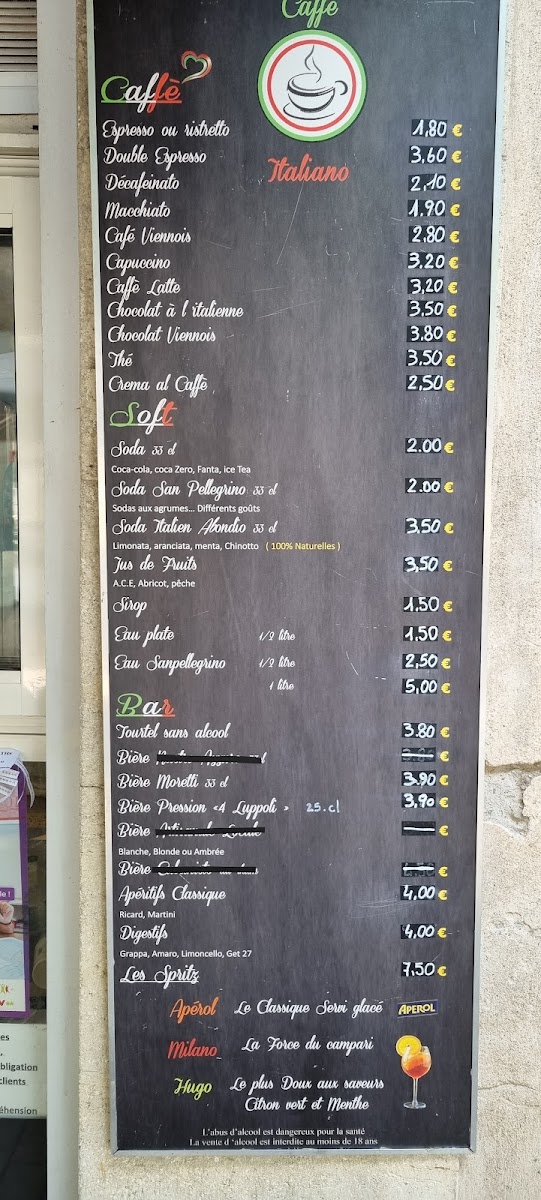 Caffè
Caffè
Italiano
Espresso ou ristretto 1,80 €
Double Espresso 3,60 €
Décafeinato 2,10 €
Macchiato 1,90 €
Café Viennois 2,80 €
Capuccino 3,20 €
Caffè Latte 3,20 €
Chocolat à l'italienne 3,50 €
Chocolat Viennois 3,80 €
Thé 3,50 €
Crema al Caffè 2,50 €
Soft
Soda 33 cl 2.00 €
Coca-cola, coca Zero, Fanta, ice Tea
Soda San Pellegrino 33 cl 2.00 €
Sodas aux agrumes... Différents goûts
Soda Italien Abondio 33 cl 3,50 €
Limonata, aranciata, menta, Chinotto ( 100% Naturelles )
Jus de Fruits 3,50 €
A.C.E, Abricot, pêche
Sirop 1.50 €
Eau plate 1/2 litre 1,50 €
Eau Sanpellegrino 1/2 litre 2,50 €
1 litre 5,00 €
Bar
Tourtel sans alcool 3.80 €
Bière €
Bière Moretti 33 cl 3.90 €
Bière Pression «4 Luppoli » 25.cl 3,90 €
Bière €
Blanche, Blonde ou Ambrée
Bière €
Apéritifs Classique 4,00 €
Ricard, Martini
Digestifs 4,00 €
Grappa, Amaro, Limoncello, Get 27
Les Spritz 7,50 €
Apérol Le Classique Servi glacé APEROL
Milano La Force du campari
Hugo Le plus Doux aux saveurs
Citron vert et Menthe
L'abus d'alcool est dangereux pour la santé
La vente d 'alcool est interdite au moins de 18 ans
es
bligation
clients
éhension